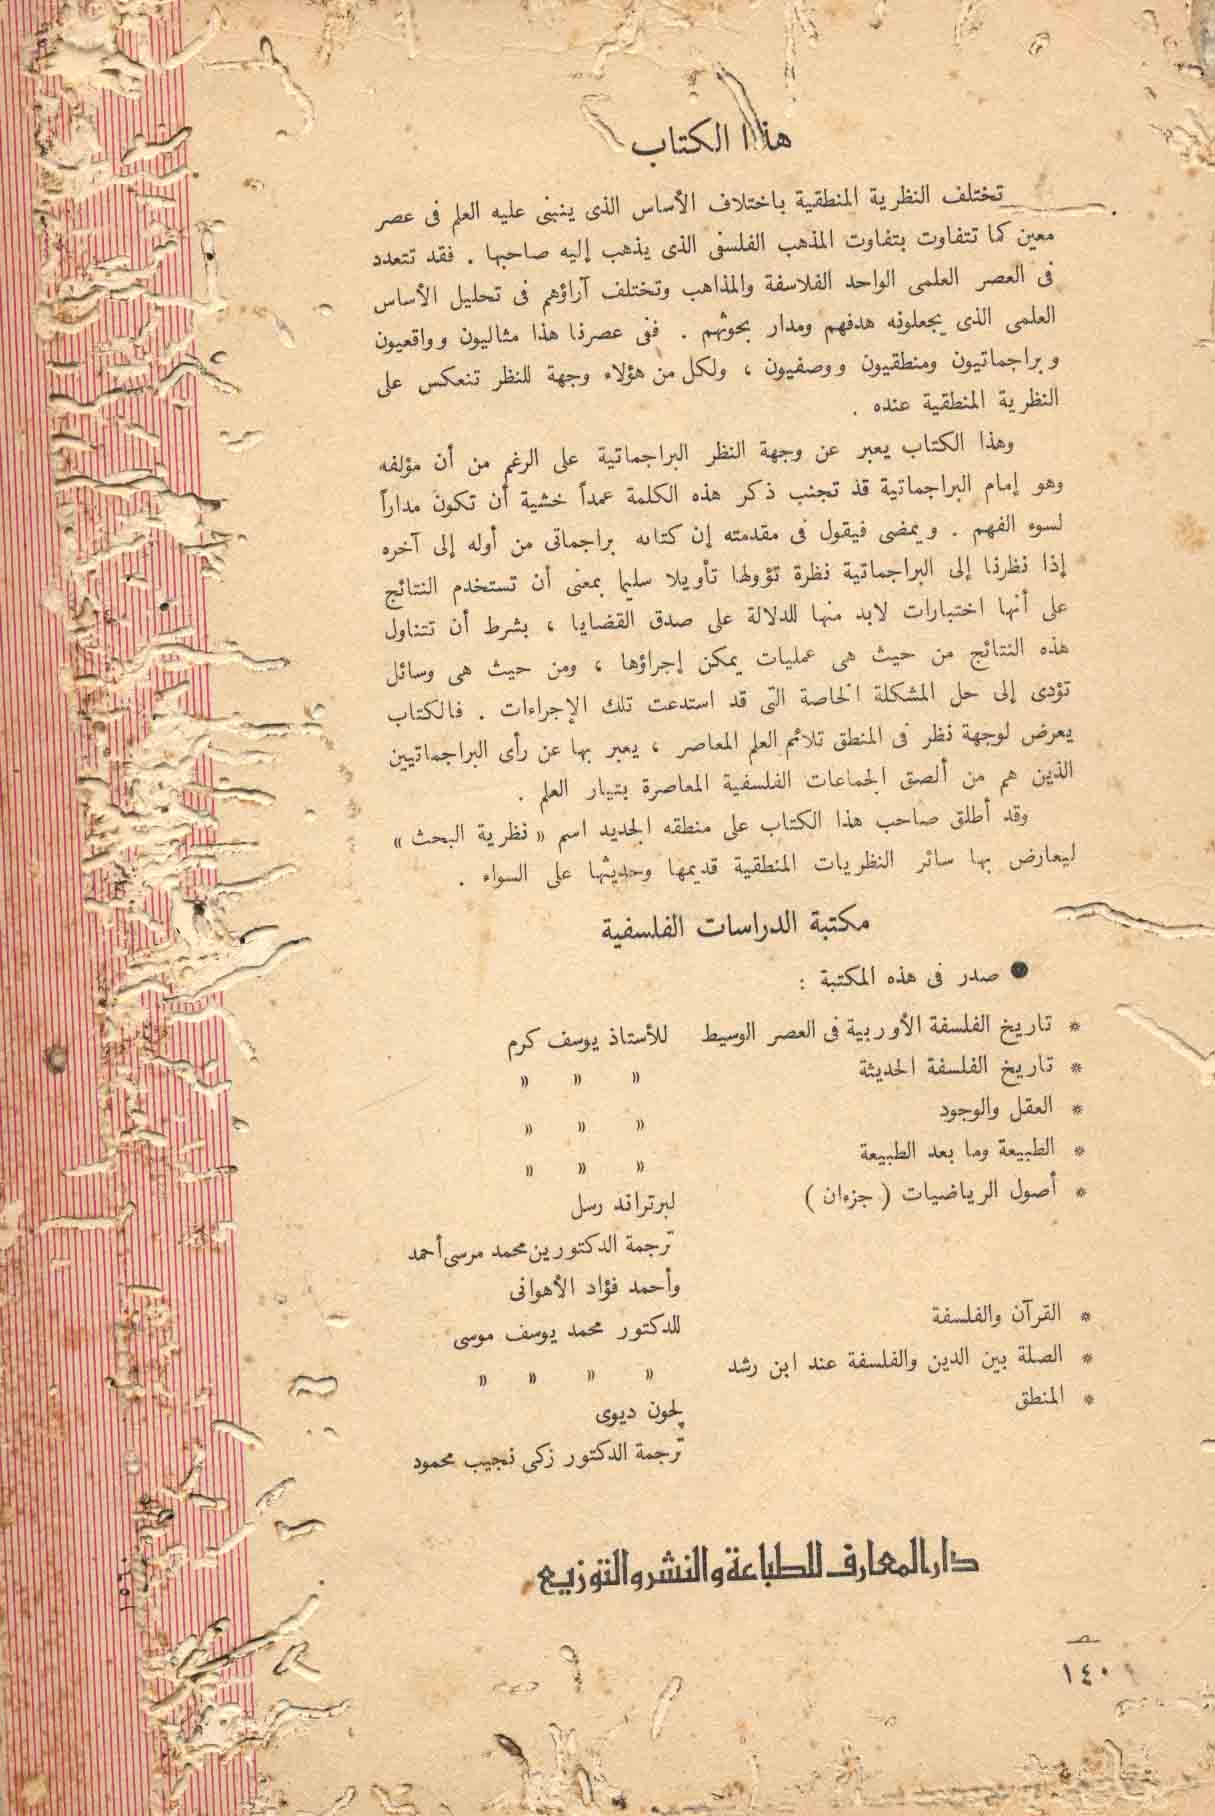 هذا الكتاب
تختلف النظرية المنطقية باختلاف الأساس الذى ينبنى عليه العلم فى عصر
معين كما تتفاوت بتفاوت المذهب الفلسفى الذى يذهب إليه صاحبها . فقد تتعدد
فى العصر العلمى الواحد الفلاسفة والمذاهب وتختلف آراؤهم فى تحليل الأساس
العلمى الذى يجعلونه هدفهم ومدار بحوثهم . ففى عصرنا هذا مثاليون وواقعيون
وبراجماتيون ومنطقيون ووصفيون ، ولكل من هؤلاء وجهة للنظر تنعكس على
النظرية المنطقية عنده .
وهذا الكتاب يعبر عن وجهة النظر البراجماتية على الرغم من أن مؤلفه
وهو إمام البراجماتية قد تجنب ذكر هذه الكلمة عمداً خشية أن تكون مداراً
لسوء الفهم . ويمضى فيقول فى مقدمته إن كتابه براجماتى من أوله إلى آخره
إذا نظرنا إلى البراجماتية نظرة تؤولها تأويلا سليما بمعنى أن تستخدم النتائج
على أنها اختبارات لابد منها للدلالة على صدق القضايا ، بشرط أن تتناول
هذه النتائج من حيث هى عمليات يمكن إجراؤها ، ومن حيث هى وسائل
تؤدى إلى حل المشكلة الخاصة التى قد استدعت تلك الإجراءات . فالكتاب
يعرض لوجهة نظر فى المنطق تلائم العلم المعاصر ، يعبر بها عن رأى البراجماتيين
الذين هم من ألصق الجماعات الفلسفية المعاصرة بتيار العلم .
وقد أطلق صاحب هذا الكتاب على منطقه الجديد اسم « نظرية البحث »
ليعارض بها سائر النظريات المنطقية قديمها وحديثها على السواء .
مكتبة الدراسات الفلسفية
● صدر فى هذه المكتبة :
* تاريخ الفلسفة الأوربية فى العصر الوسيط للأستاذ يوسف كرم
* تاريخ الفلسفة الحديثة » » »
* العقل والوجود » » »
* الطبيعة وما بعد الطبيعة » » »
* أصول الرياضيات ( جزءان ) لبرتراند رسل
ترجمة الدكتورين محمد مرسى أحمد
وأحمد فؤاد الأهوانى
* القرآن والفلسفة للدكتور محمد يوسف موسى
* الصلة بين الدين والفلسفة عند ابن رشد » » » »
* المنطق لچون ديوى
ترجمة الدكتور زكى نجيب محمود
دار المعارف للطباعة والنشر والتوزيع
١٤٠